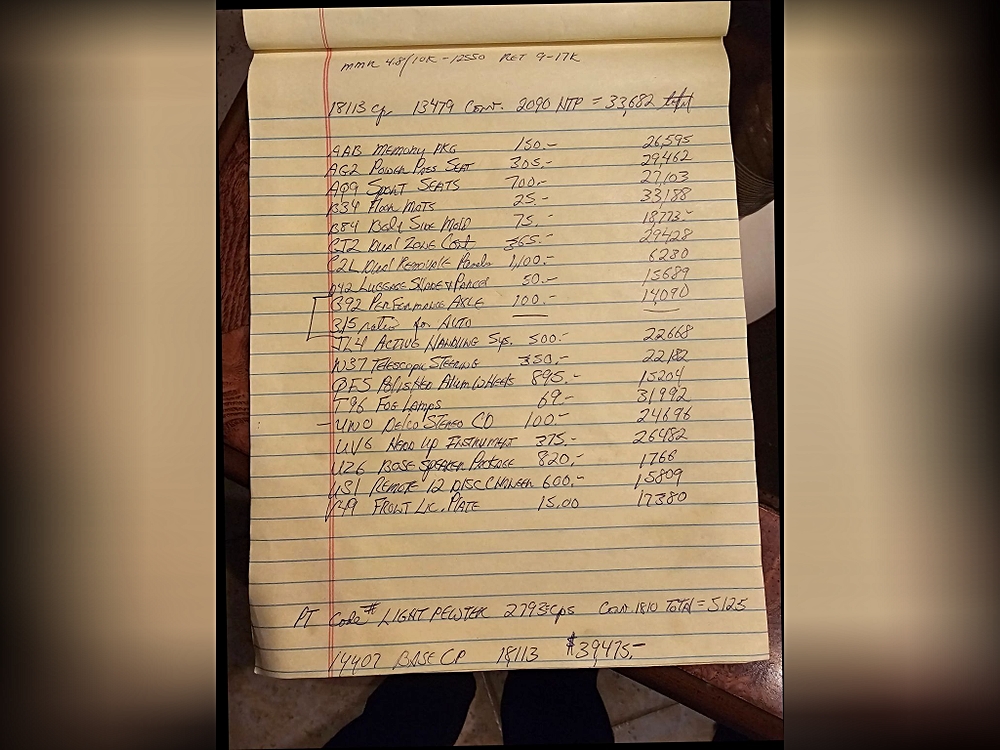 MMR 4.8/10K - 12550 RET 9-17K
18113 cp 13479 Conv. 2090 HTP = 33,682 total
AAB MEMORY PKG 150.- 26,595
AG2 POWER PASS SEAT 305.- 29,462
AQ9 SPORT SEATS 700.- 27,103
B34 FLOOR MATS 25.- 33,188
B84 BODY SIDE MOLD 75.- 18,773-
CJ2 DUAL ZONE Cont 365.- 29428
C2L DUAL REMOVABLE Panels 1,100.- 6230
D42 LUGGAGE SHADE & PARCEL 50.- 15689
G92 PERFORMANCE AXLE 100.- 14090
315 ratio for AUTO
JL4 ACTIVE HANDLING Sys. 500.- 22668
N37 TELESCOPIC STEERING 350.- 22182
QF5 POLISHED Alum WHEELS 895.- 15204
T96 FOG LAMPS 69.- 31992
UN0 DELCO STEREO CD 100.- 24696
UV6 HEAD UP INSTRUMENT 375.- 26482
UZ6 BOSE SPEAKER PACKAGE 820.- 1766
U1S1 REMOTE 12 DISC CHANGER 600.- 15809
V49 FRONT LIC. PLATE 15.00 17380
PT Code # LIGHT PEWTER 2793 cps Conv 1810 TOTAL = 5125
14407 BASE CP 18113 $39,475.-